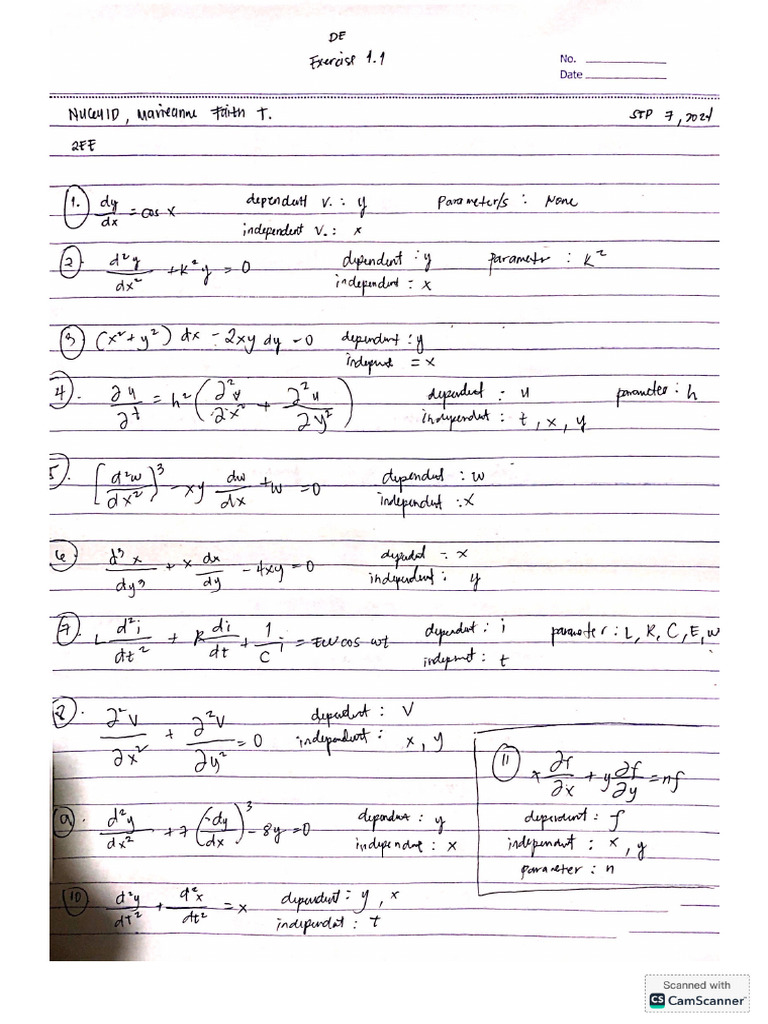 DE
Exercise 1.1
No.
Date
Marieanne Faith T.
SEP 7, 2021
2EE
1. dy/dx = cos x dependent v. : y Parameter/s : None
independent v. : x
2. d²y/dx² + k²y = 0 dependent : y parameter : k²
independent = x
3 (x² + y²) dx - 2xy dy = 0 dependent : y
independ = x
4. ∂u/∂t = h² (∂²u/∂x² + ∂²u/∂y²) dependent : u parameter : h
independent : t, x, y
5. [d²w/dx²)³ - xy dw/dx + w = 0 dependent : w
independent : x
6 d³x/dy³ + x dx/dy - 4xy = 0 dependent = x
independent : y
7. L d²i/dt² + R di/dt + 1/C i = Ew cos wt dependent : i parameter : L, R, C, E, w
independent : t
8. ∂²V/∂x² + ∂²V/∂y² = 0 dependent : V
independent : x, y
9. d²y/dx² + 7 (dy/dx)³ - 8y = 0 dependent : y
independent : x
10 d²y/dt² + d²x/dt² = x dependent : y, x
independent : t
11 x ∂f/∂x + y ∂f/∂y = nf
dependent : f
independent : x, y
parameter : n
Scanned with
CS CamScanner